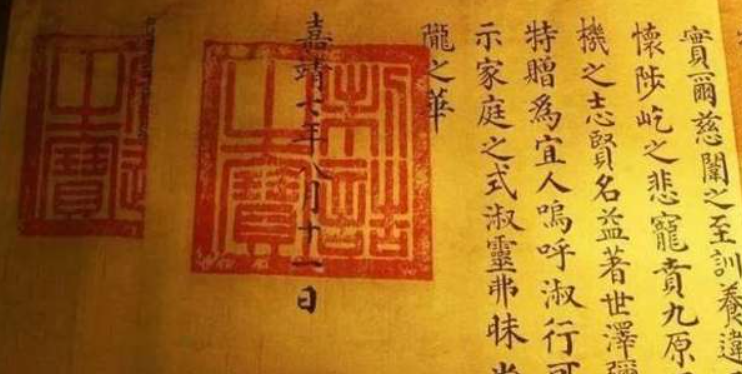 實爾慈闈之至訓養違
懷陟屺之悲寵賁九原
機之志賢名益著世澤彌
特贈爲宜人嗚呼淑行可
示家庭之式淑靈弗昧尚
隴之華
嘉靖七年八月十一日
制誥之寶
之寶